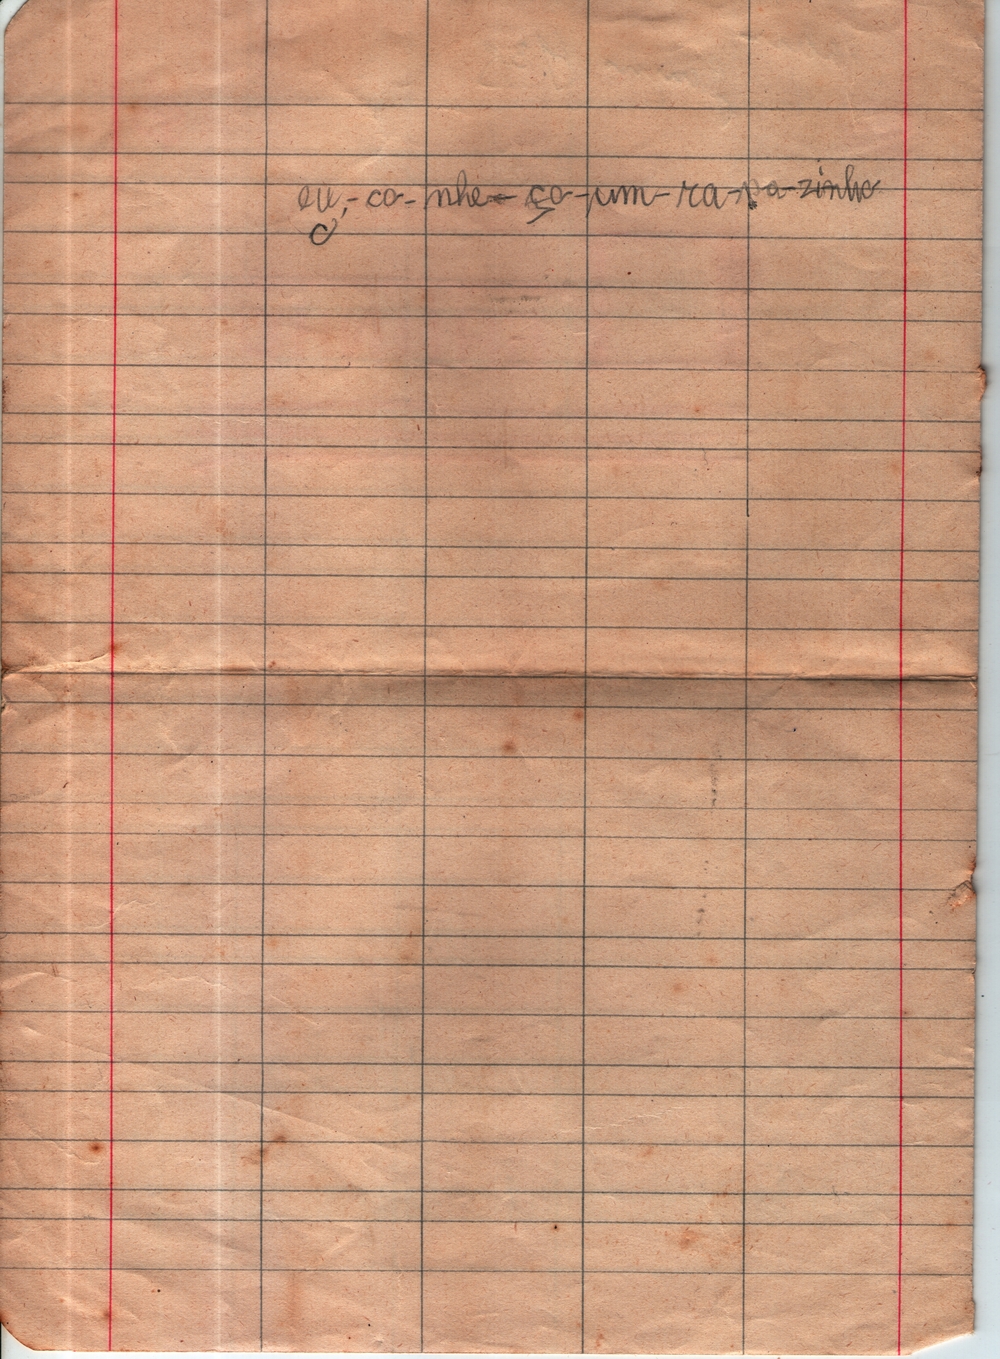 eu,-co-nhe-ço-um-ra-pa-zinho
o